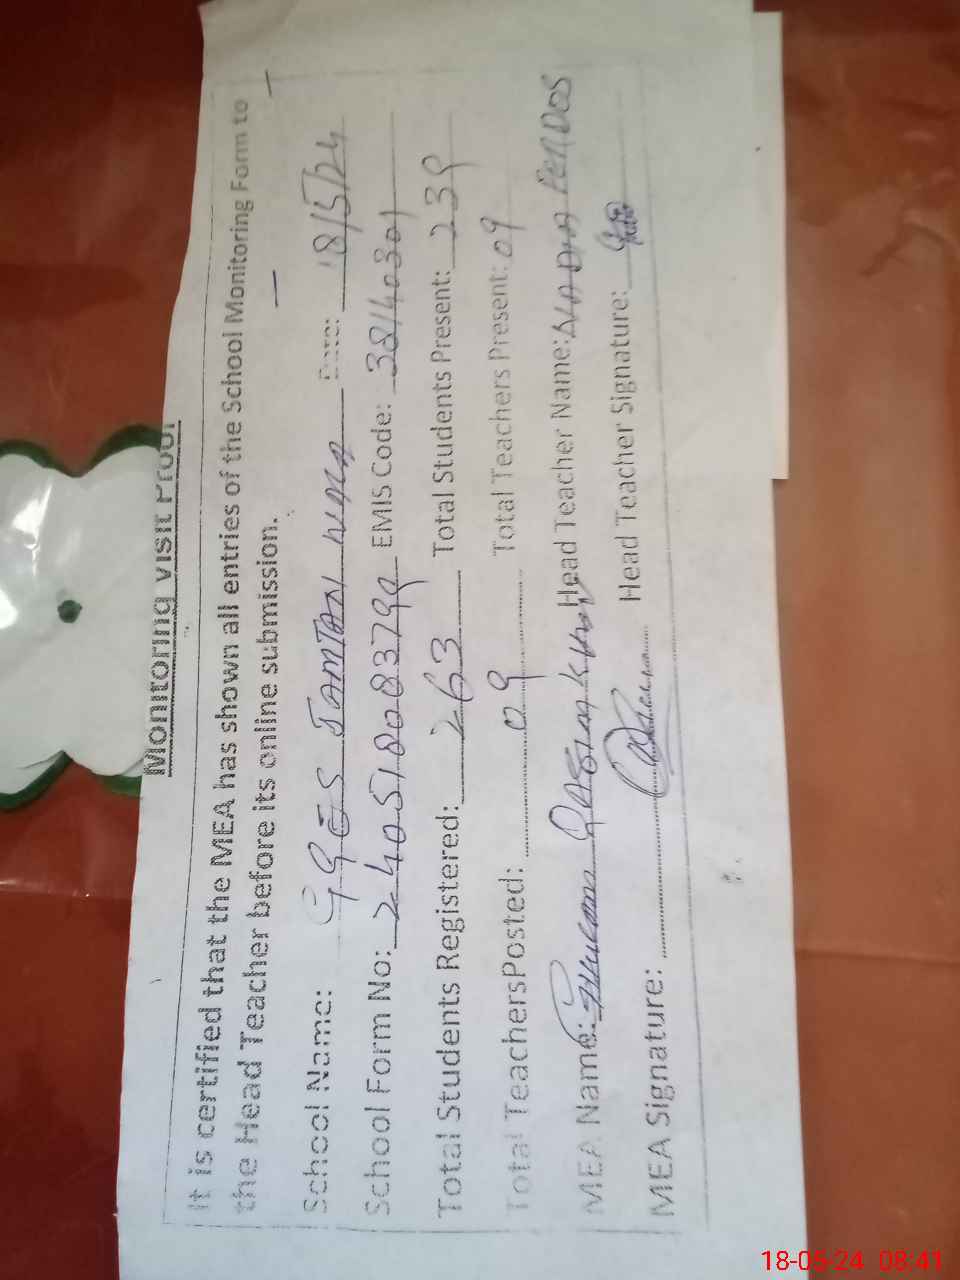 Monitoring Visit Proof
It is certified that the MEA has shown all entries of the School Monitoring Form to
the Head Teacher before its online submission.
School Name: GGES JAMTAN WALA Date: 18/5/24
School Form No: 2405180083799 EMIS Code: 38140301
Total Students Registered: 263 Total Students Present: 239
Total TeachersPosted: 09 Total Teachers Present: 09
MEA Name: Ghulam QASIM KHAN Head Teacher Name: NADIA FERDOS
MEA Signature: Head Teacher Signature:
18-05-24 08:41